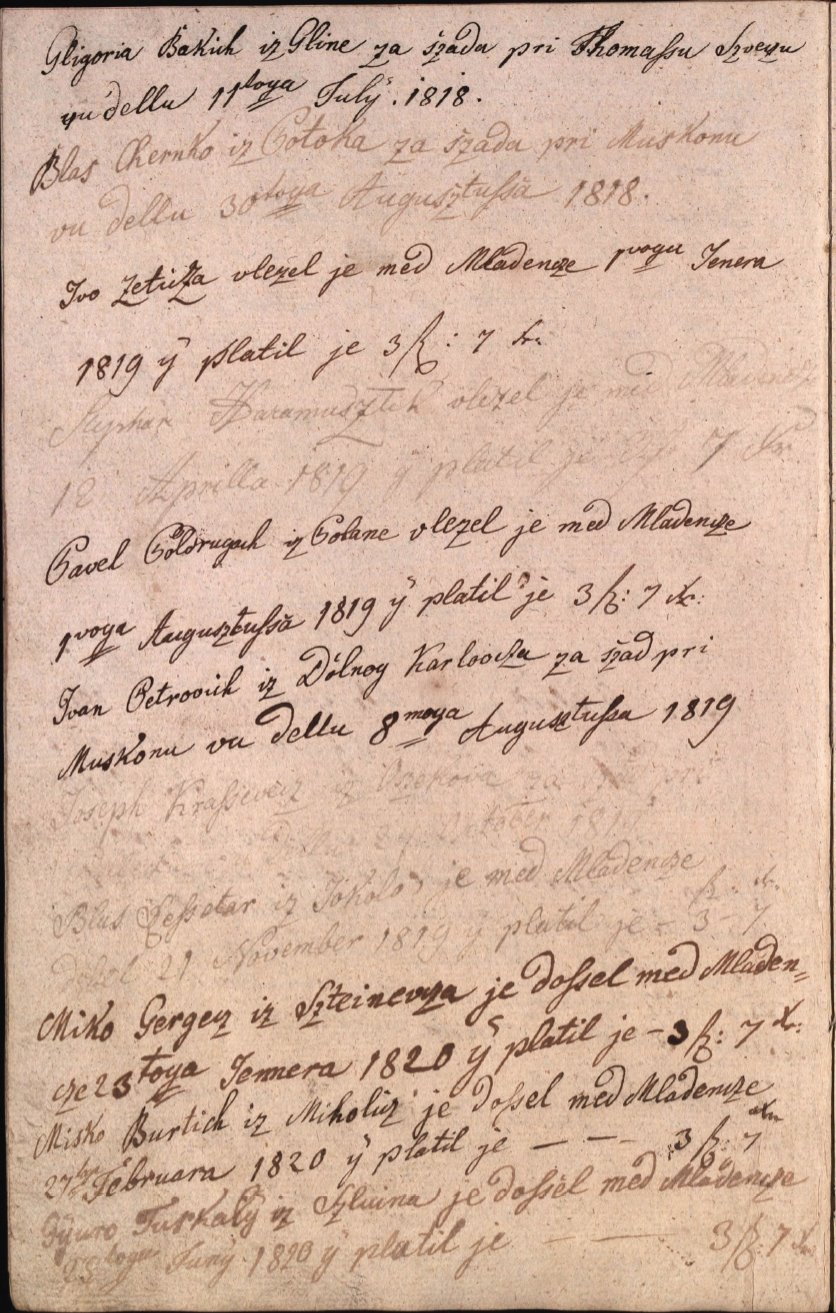 Gligoria Bakich iz Gline za szada pri Thomassu
vu dellu 11toga July. 1818.
Blas Chernko iz Potoka za szadu pri Muskonu
vu dellu 30toga Augusztussa 1818.
Ivo Zeticza vlezel je med Mladencze 1voga Jenera
1819 ÿ platil je 3 f: 7 xr.
Stephan vlezel je med Mladencze
12 Aprilla 1819 ÿ platil je 7 xr
Pavel iz vlezel je med Mladencze
1voga Augusztussa 1819 ÿ platil je 3 f: 7 xr:
Ivan Petrovich iz Dolnog Karlovcza za szad pri
Muskonu vu dellu 8moga Augusztussa 1819
Joseph iz za pri
October 1819
Blas iz je med Mladencze f. xr.
21 November 1819 ÿ platil je - 3 - 7
Miko Gergecz iz je dossel med Mladen=
cze 23toga Jennera 1820 ÿ platil je - 3 f: 7 xr:
Misko Burtich iz je dossel med Mladencze
27 Februara 1820 ÿ platil je — — 3 f: 7 xr
Gyuro iz Szluina je dossel med Mladencze
toga Juny 1820 ÿ platil je — — 3 f: 7 xr